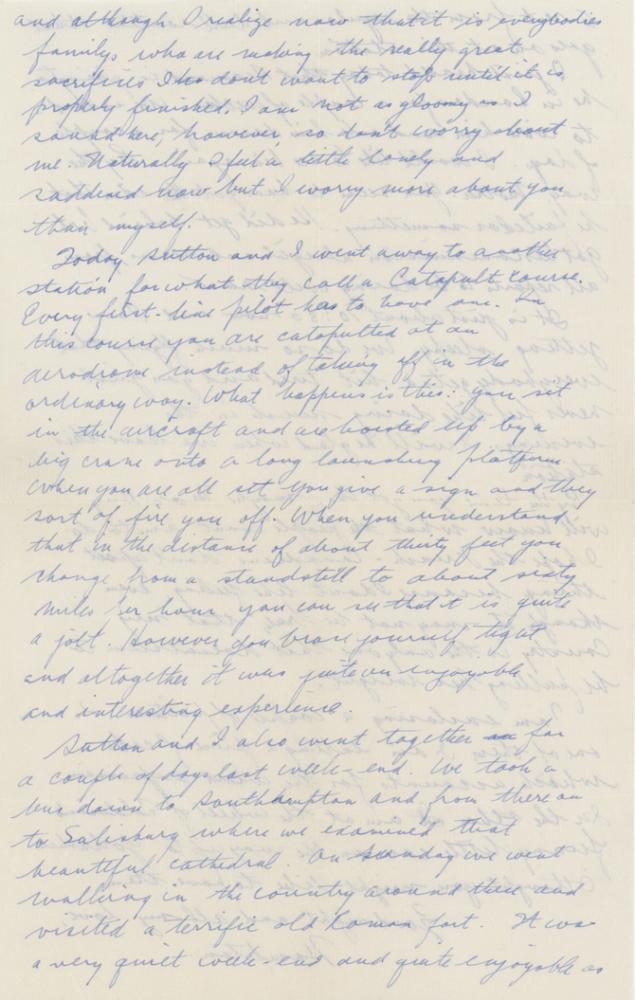 and although I realize now that it is everybodies
familys who are making the really great
sacrifices I do dont want to stop until it is
properly finished. I am not as gloomy as I
sound here, however, so don't worry about
me. Naturally I feel a little lonely and
saddend now but I worry more about you
than myself.
Today Sutton and I went away to another
station for what they call a Catapult Course.
Every first-line pilot has to have one. In
this course you are catapulted at an
aerodrome instead of taking off in the
ordinary way. What happens is this: you sit
in the aircraft and are hoisted up by a
big crane onto a long launching platform
When you are all set you give a sign and they
sort of fire you off. When you understand
that in the distance of about thirty feet you
change from a standstill to about sixty
miles per hour you can see that it is quite
a jolt. However you brace yourself tight
and altogether it was quite an enjoyable
and interesting experience.
Sutton and I also went together for
a couple of days last week-end. We took a
bus down to Southampton and from there on
to Salisbury where we examined that
beautiful cathedral. On Sunday we went
walking in the country around there and
visited a terrific old Roman fort. It was
a very quiet week-end and quite enjoyable as